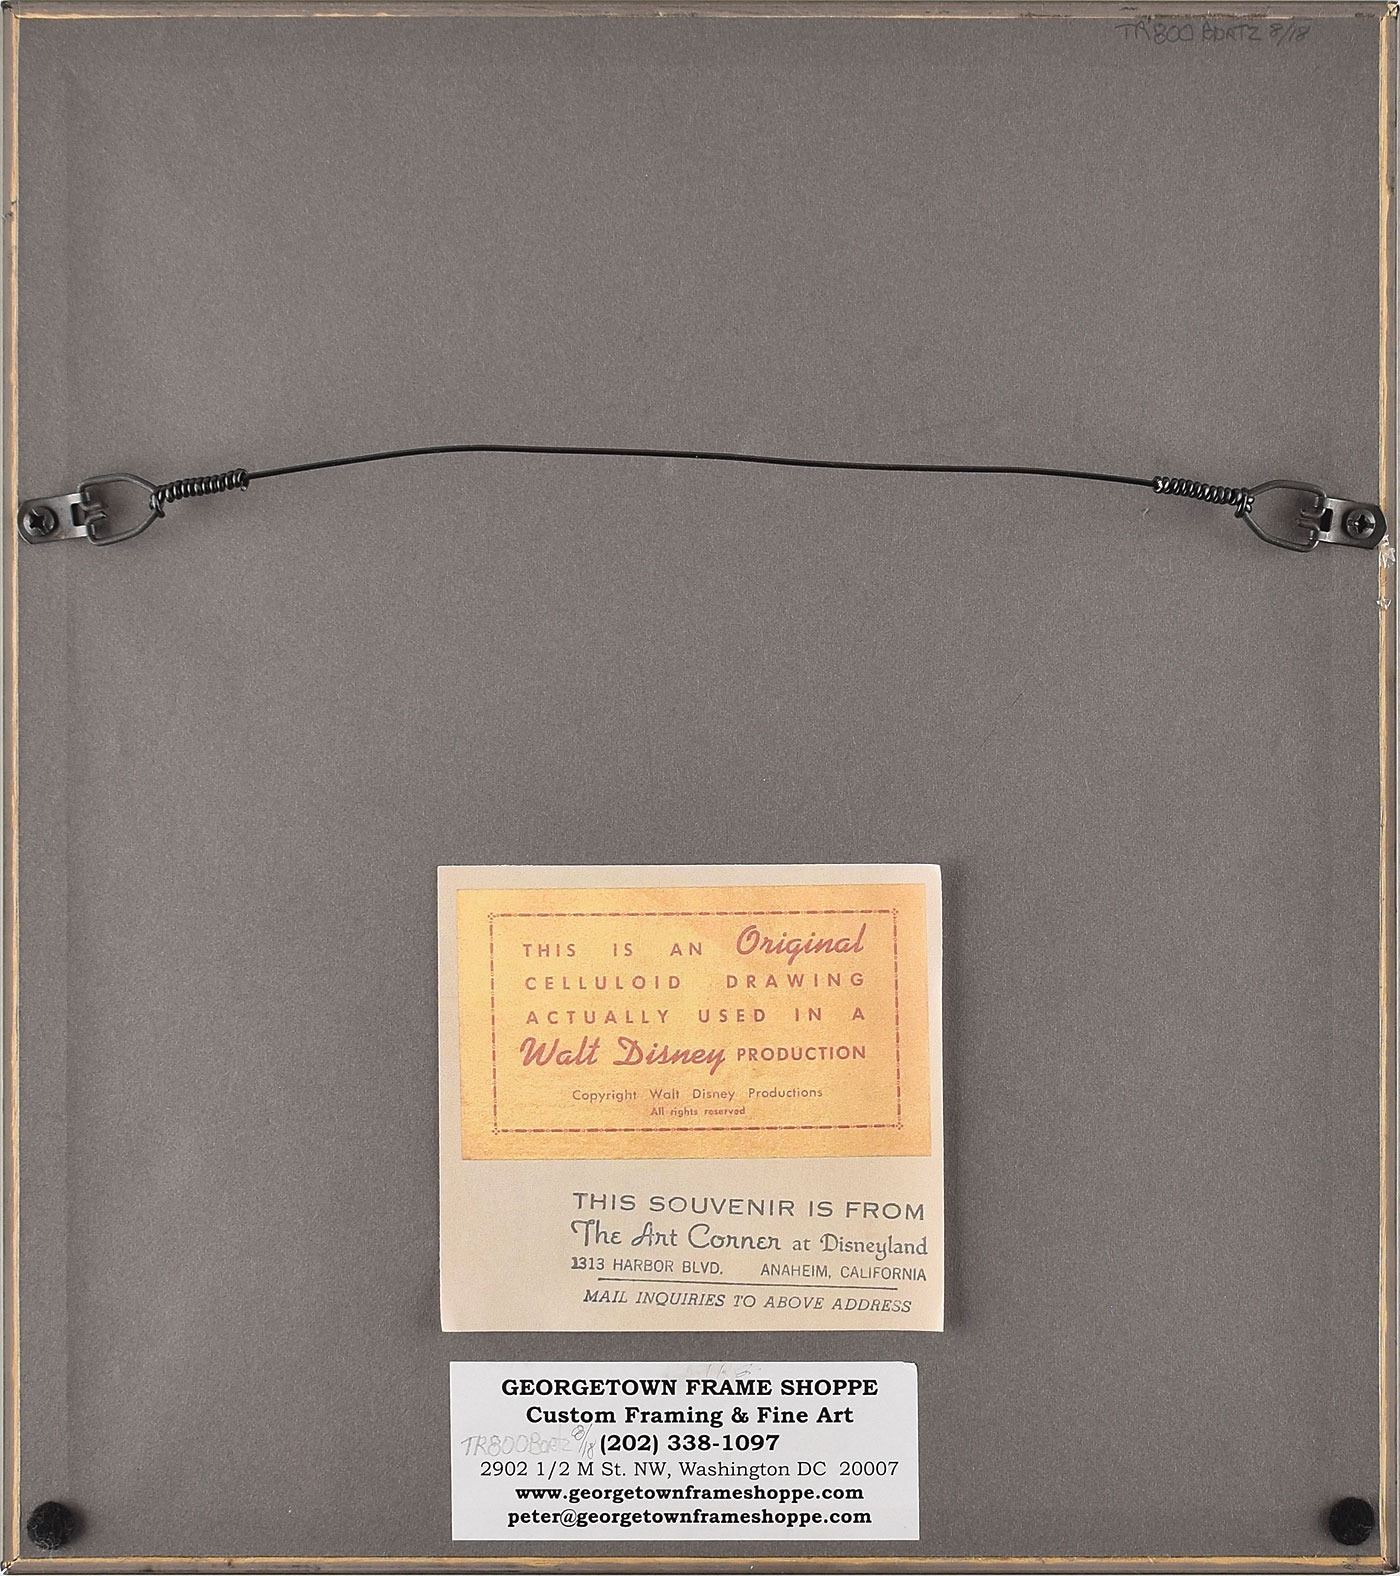 TR800 BORTZ 8/18
THIS IS AN Original
CELLULOID DRAWING
ACTUALLY USED IN A
Walt Disney PRODUCTION
Copyright Walt Disney Productions
All rights reserved
THIS SOUVENIR IS FROM
The Art Corner at Disneyland
1313 HARBOR BLVD. ANAHEIM, CALIFORNIA
MAIL INQUIRIES TO ABOVE ADDRESS
GEORGETOWN FRAME SHOPPE
Custom Framing & Fine Art
TR800Bortz 8/18 (202) 338-1097
2902 1/2 M St. NW, Washington DC 20007
www.georgetownframeshoppe.com
peter@georgetownframeshoppe.com